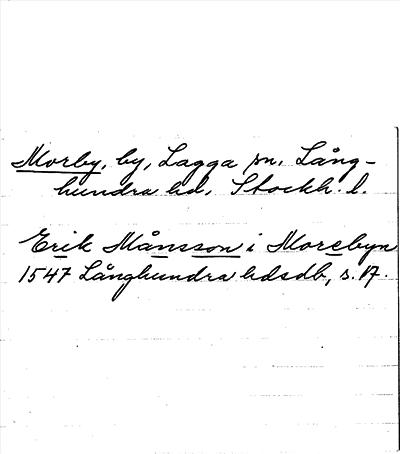 Morby, by, Lagga sn. Lång-
hundra hd, Stockh. l.
Erik Månsson i Morebyn
1547 Långhundra hdsdb, s. 17.